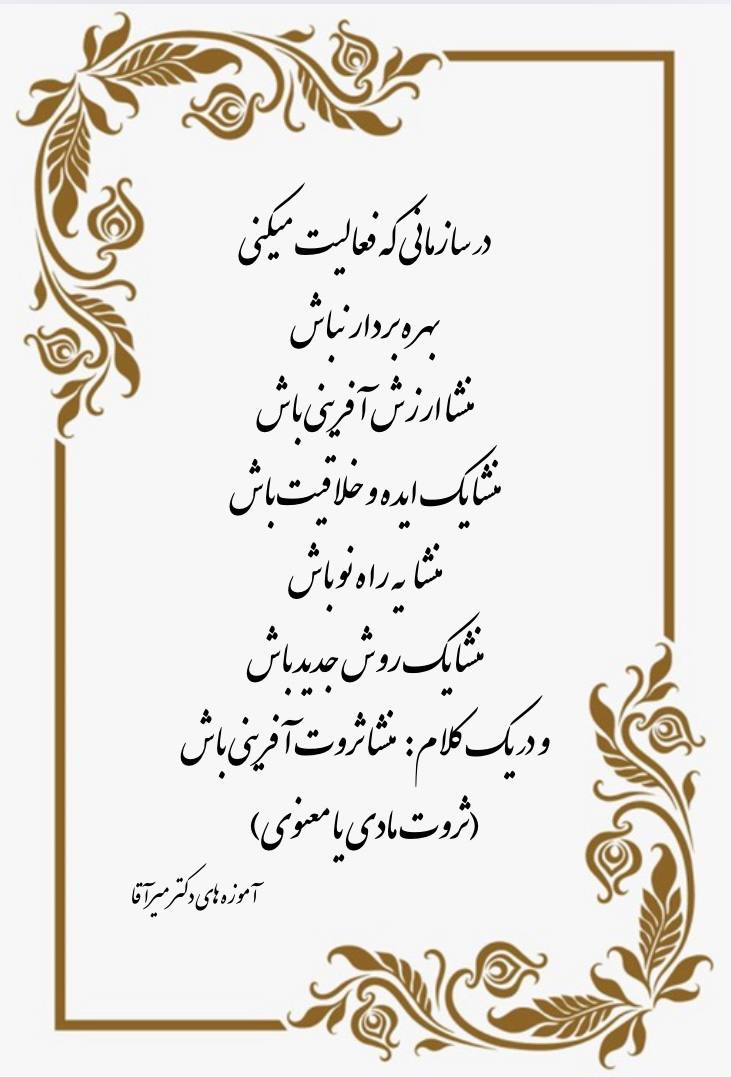 در سازمانی که فعالیت میکنی
بهره بردار نباش
منشا ارزش آفرینی باش
منشا یک ایده و خلاقیت باش
منشا یه راه نو باش
منشا یک روش جدید باش
و در یک کلام : منشا ثروت آفرینی باش
(ثروت مادی یا معنوی)
آموزه های دکتر میرآقا